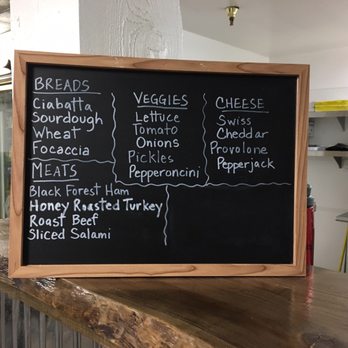 BREADS
Ciabatta
Sourdough
Wheat
Focaccia
MEATS
Black Forest Ham
Honey Roasted Turkey
Roast Beef
Sliced Salami
VEGGIES
Lettuce
Tomato
Onions
Pickles
Pepperoncini
CHEESE
Swiss
Cheddar
Provolone
Pepperjack